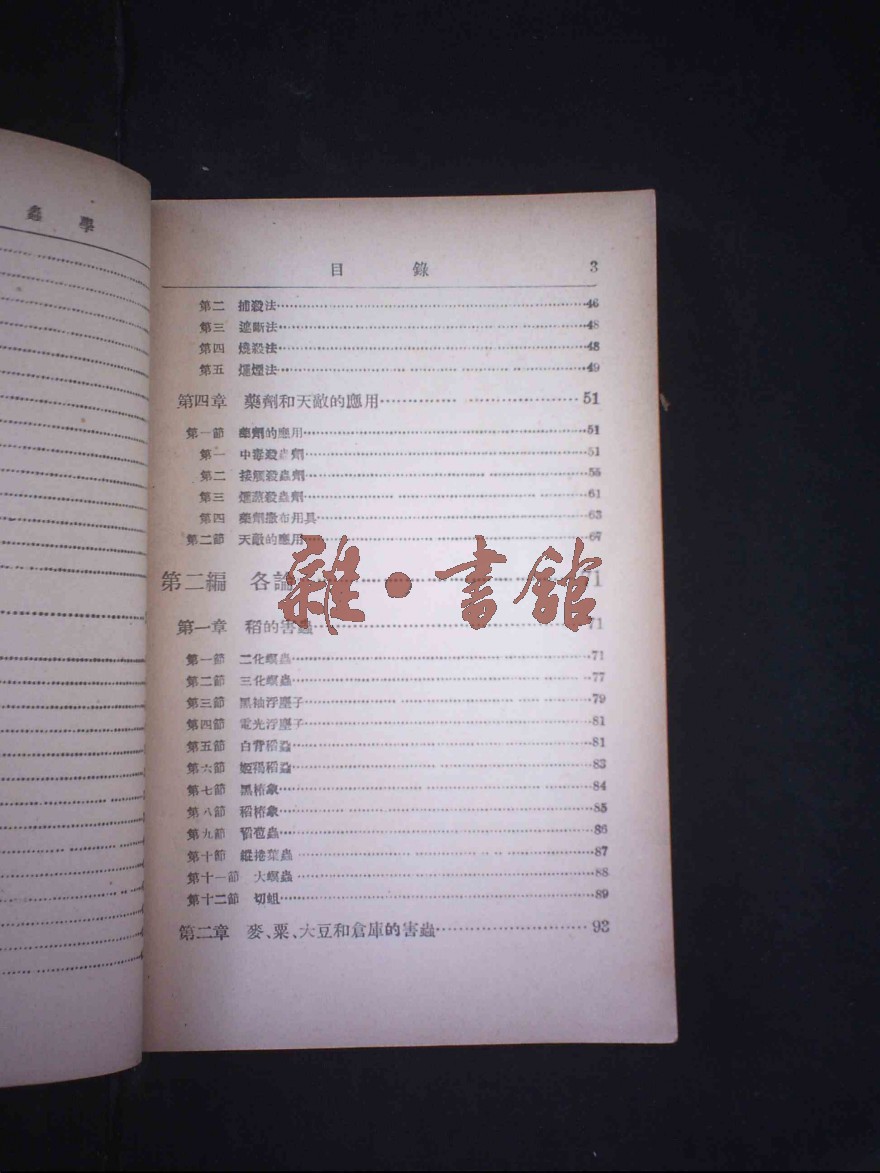 蟲學
目錄 3
第二 捕殺法 46
第三 遮斷法 48
第四 燒殺法 48
第五 燻煙法 49
第四章 藥劑和天敵的應用 51
第一節 藥劑的應用 51
第一 中毒殺蟲劑 51
第二 接觸殺蟲劑 55
第三 燻蒸殺蟲劑 61
第四 藥劑撒布用具 63
第二節 天敵的應用 67
第二編 各論 71
雜·書館
第一章 稻的害蟲 71
第一節 二化螟蟲 71
第二節 三化螟蟲 77
第三節 黑袖浮塵子 79
第四節 電光浮塵子 81
第五節 白背稻蝨 81
第六節 姬褐稻蝨 83
第七節 黑椿象 84
第八節 稻椿象 85
第九節 稻苞蟲 86
第十節 縱捲葉蟲 87
第十一節 大螟蟲 88
第十二節 切蛆 89
第二章 麥、粟、大豆和倉庫的害蟲 93